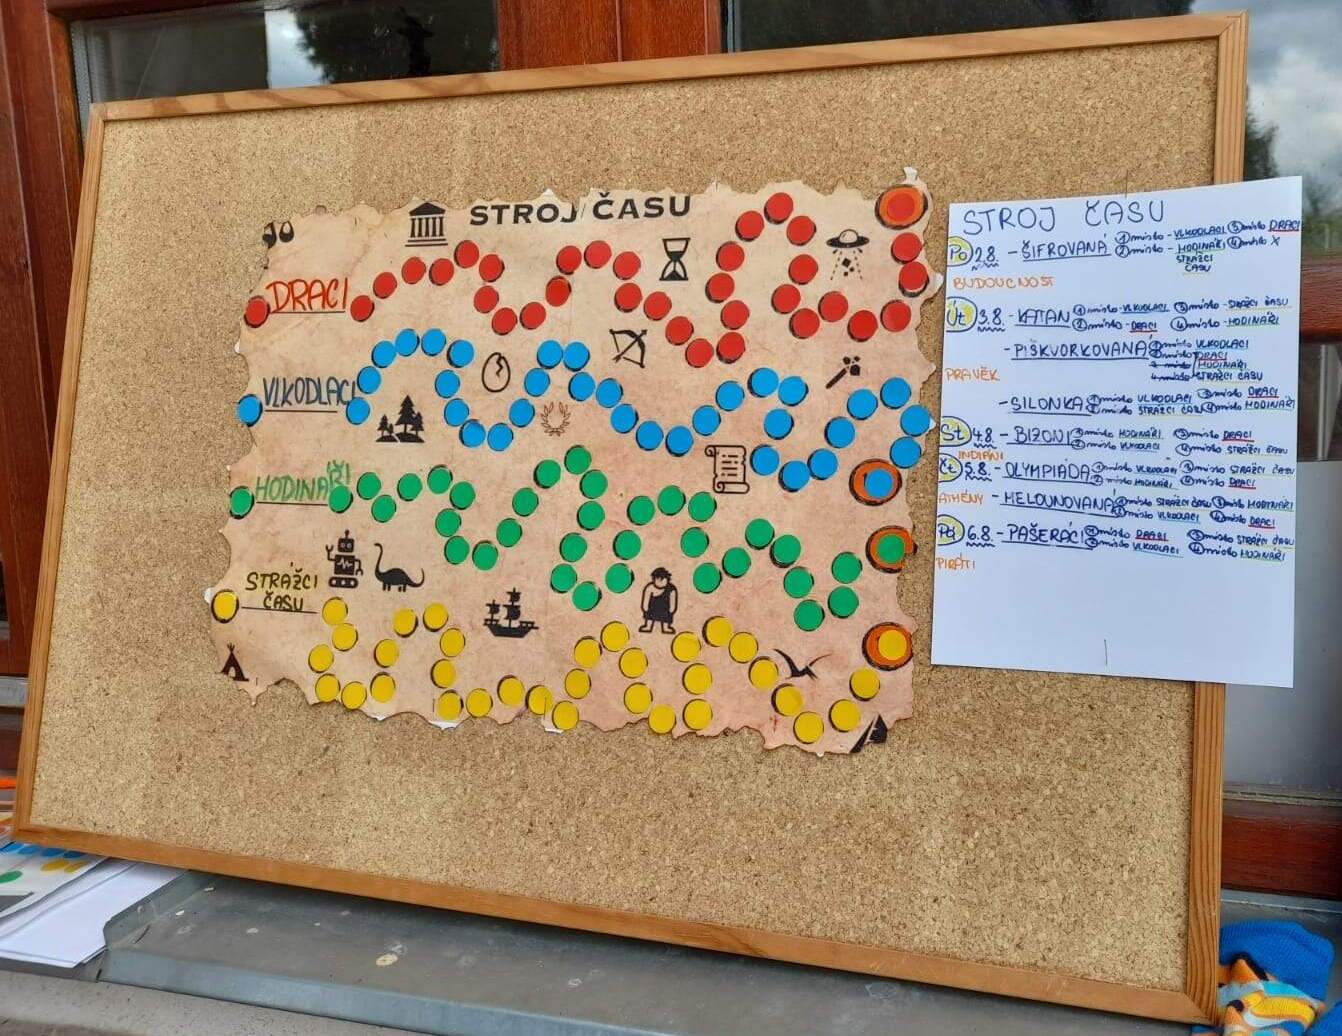 STROJ ČASU
DRACI
VLKODLACI
HODINAŘI
STRÁŽCI
ČASU
STROJ ČASU
Po 2.8. - ŠIFROVANÁ ① místo - VLKODLACI ③ místo DRACI
② místo - HODINÁŘI ④ místo X
STRÁŽCI
ČASU
BUDOUCNOST
Út 3.8. - KATAN ① místo - VLKODLACI ③ místo - STRÁŽCI ČASU
② místo - DRACI ④ místo - HODINÁŘI
- PIŠKVORKOVANÁ ① místo VLKODLACI
② místo DRACI
3 místo HODINÁŘI
4 místo STRÁŽCI ČASU
PRAVĚK
- SILONKA ① místo VLKODLACI ③ místo DRACI
② místo STRÁŽCI ČASU ④ místo HODINÁŘI
St 4.8. - BIZONI ① místo HODINÁŘI ③ místo DRACI
② místo VLKODLACI ④ místo STRÁŽCI ČASU
INDIÁNI
Čt 5.8. - OLYMPIÁDA ① místo VLKODLACI ③ místo STRÁŽCI ČASU
② místo HODINÁŘI ④ místo DRACI
ATHÉNY - MELOUNOVANÁ ① místo STRÁŽCI ČASU ③ místo HODINÁŘI
② místo VLKODLACI ④ místo DRACI
Pá 6.8. - PAŠERÁCI ① místo DRACI ③ místo STRÁŽCI ČASU
② místo VLKODLACI ④ místo HODINÁŘI
PIRÁTI